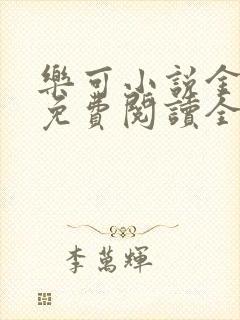 樂可小說全
免費閱讀全
李萬輝